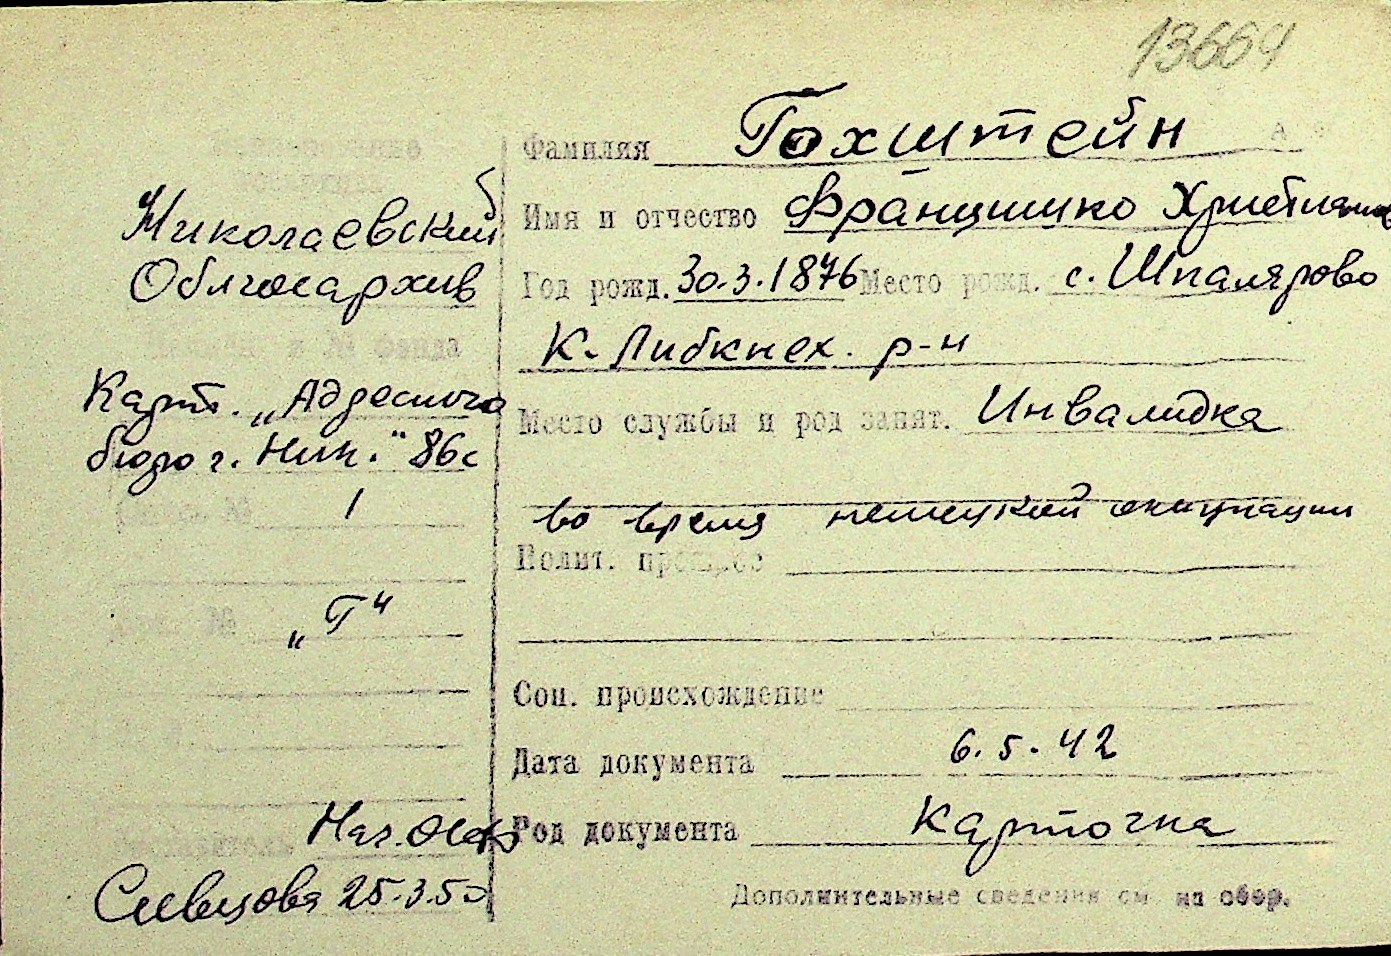 13664
Фамилия Гохштейн
Имя и отчество Францишко Христиано
Год рожд. 30.3.1876 Место рожд. с. Шпалярово
К. Либкнех. р-н
Место службы и род занят. Инвалидка
во время немецкой оккупации
Полит. прогресс
Соц. происхождение
Дата документа 6.5.42
Род документа Карточка
Дополнительные сведения см на обор.
Николаевский
Облгосархив
№ фонда
Карт. „Адресного
бюро г. Ник." 86с
№ 1
№ „Г"
Составитель Нач. Отд
25.3.50